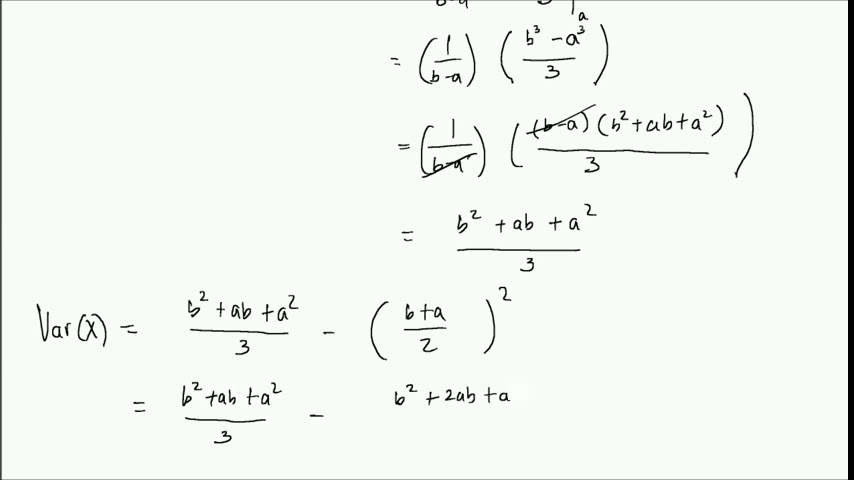 = (1/(b-a)) ((b³ - a³)/3)
= (1/(b-a)) ((b-a)(b² + ab + a²)/3)
= (b² + ab + a²)/3
Var(X) = (b² + ab + a²)/3 - ((b+a)/2)²
= (b² + ab + a²)/3 - b² + 2ab + a